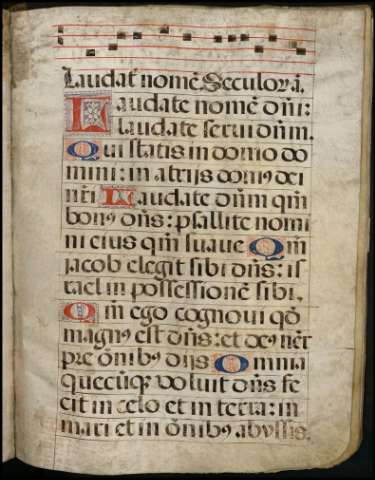 Laudat nomē. Seculorū. ā.
Laudate nomē dñi:
laudate serui dñm.
Qui statis in domo do
mini: in atrijs domꝰ dei
nr̄i Laudate dñm qm̄
bonꝰ dñs: psallite nomi
ni eius qm̄ suaue Qm̄
jacob elegit sibi dñs: is
rael in possessionē sibi.
Qm̄ ego cognoui qō
magnꝰ est dñs: et deꝰ nēr
pre ōnibꝰ dijs Omnia
quecūqꝫ voluit dñs fe
cit in celo et in terra: in
mari et in ōnibꝰ abyssis.